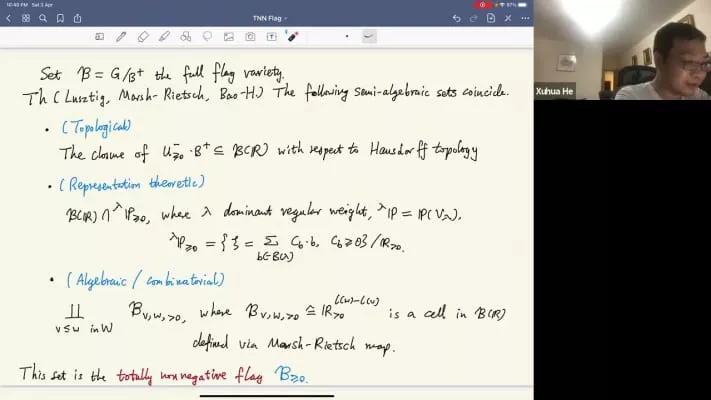 10:40 PM Sat 3 Apr
TNN Flag
97%
Set B = G/B⁺ the full flag variety.
Th (Lusztig, Marsh-Rietsch, Bao-H.) The following semi-algebraic sets coincide.
• (Topological)
The closure of U⁻≥0 · B⁺ ⊆ B(ℝ) with respect to Hausdorff topology
• (Representation theoretic)
B(ℝ) ∩ ^λℙ≥0, where λ dominant regular weight, ^λℙ = ℙ(V_λ),
^λℙ≥0 = { ξ = Σ_{b∈B(λ)} C_b · b, C_b ≥ 0 } / ℝ>0.
• (Algebraic / combinatorial)
⨆_{v≤w in W} B_{v,w,>0}, where B_{v,w,>0} ≅ ℝ>0^{ℓ(w)-ℓ(v)} is a cell in B(ℝ)
defined via Marsh-Rietsch map.
This set is the totally nonnegative flag B≥0.
Xuhua He